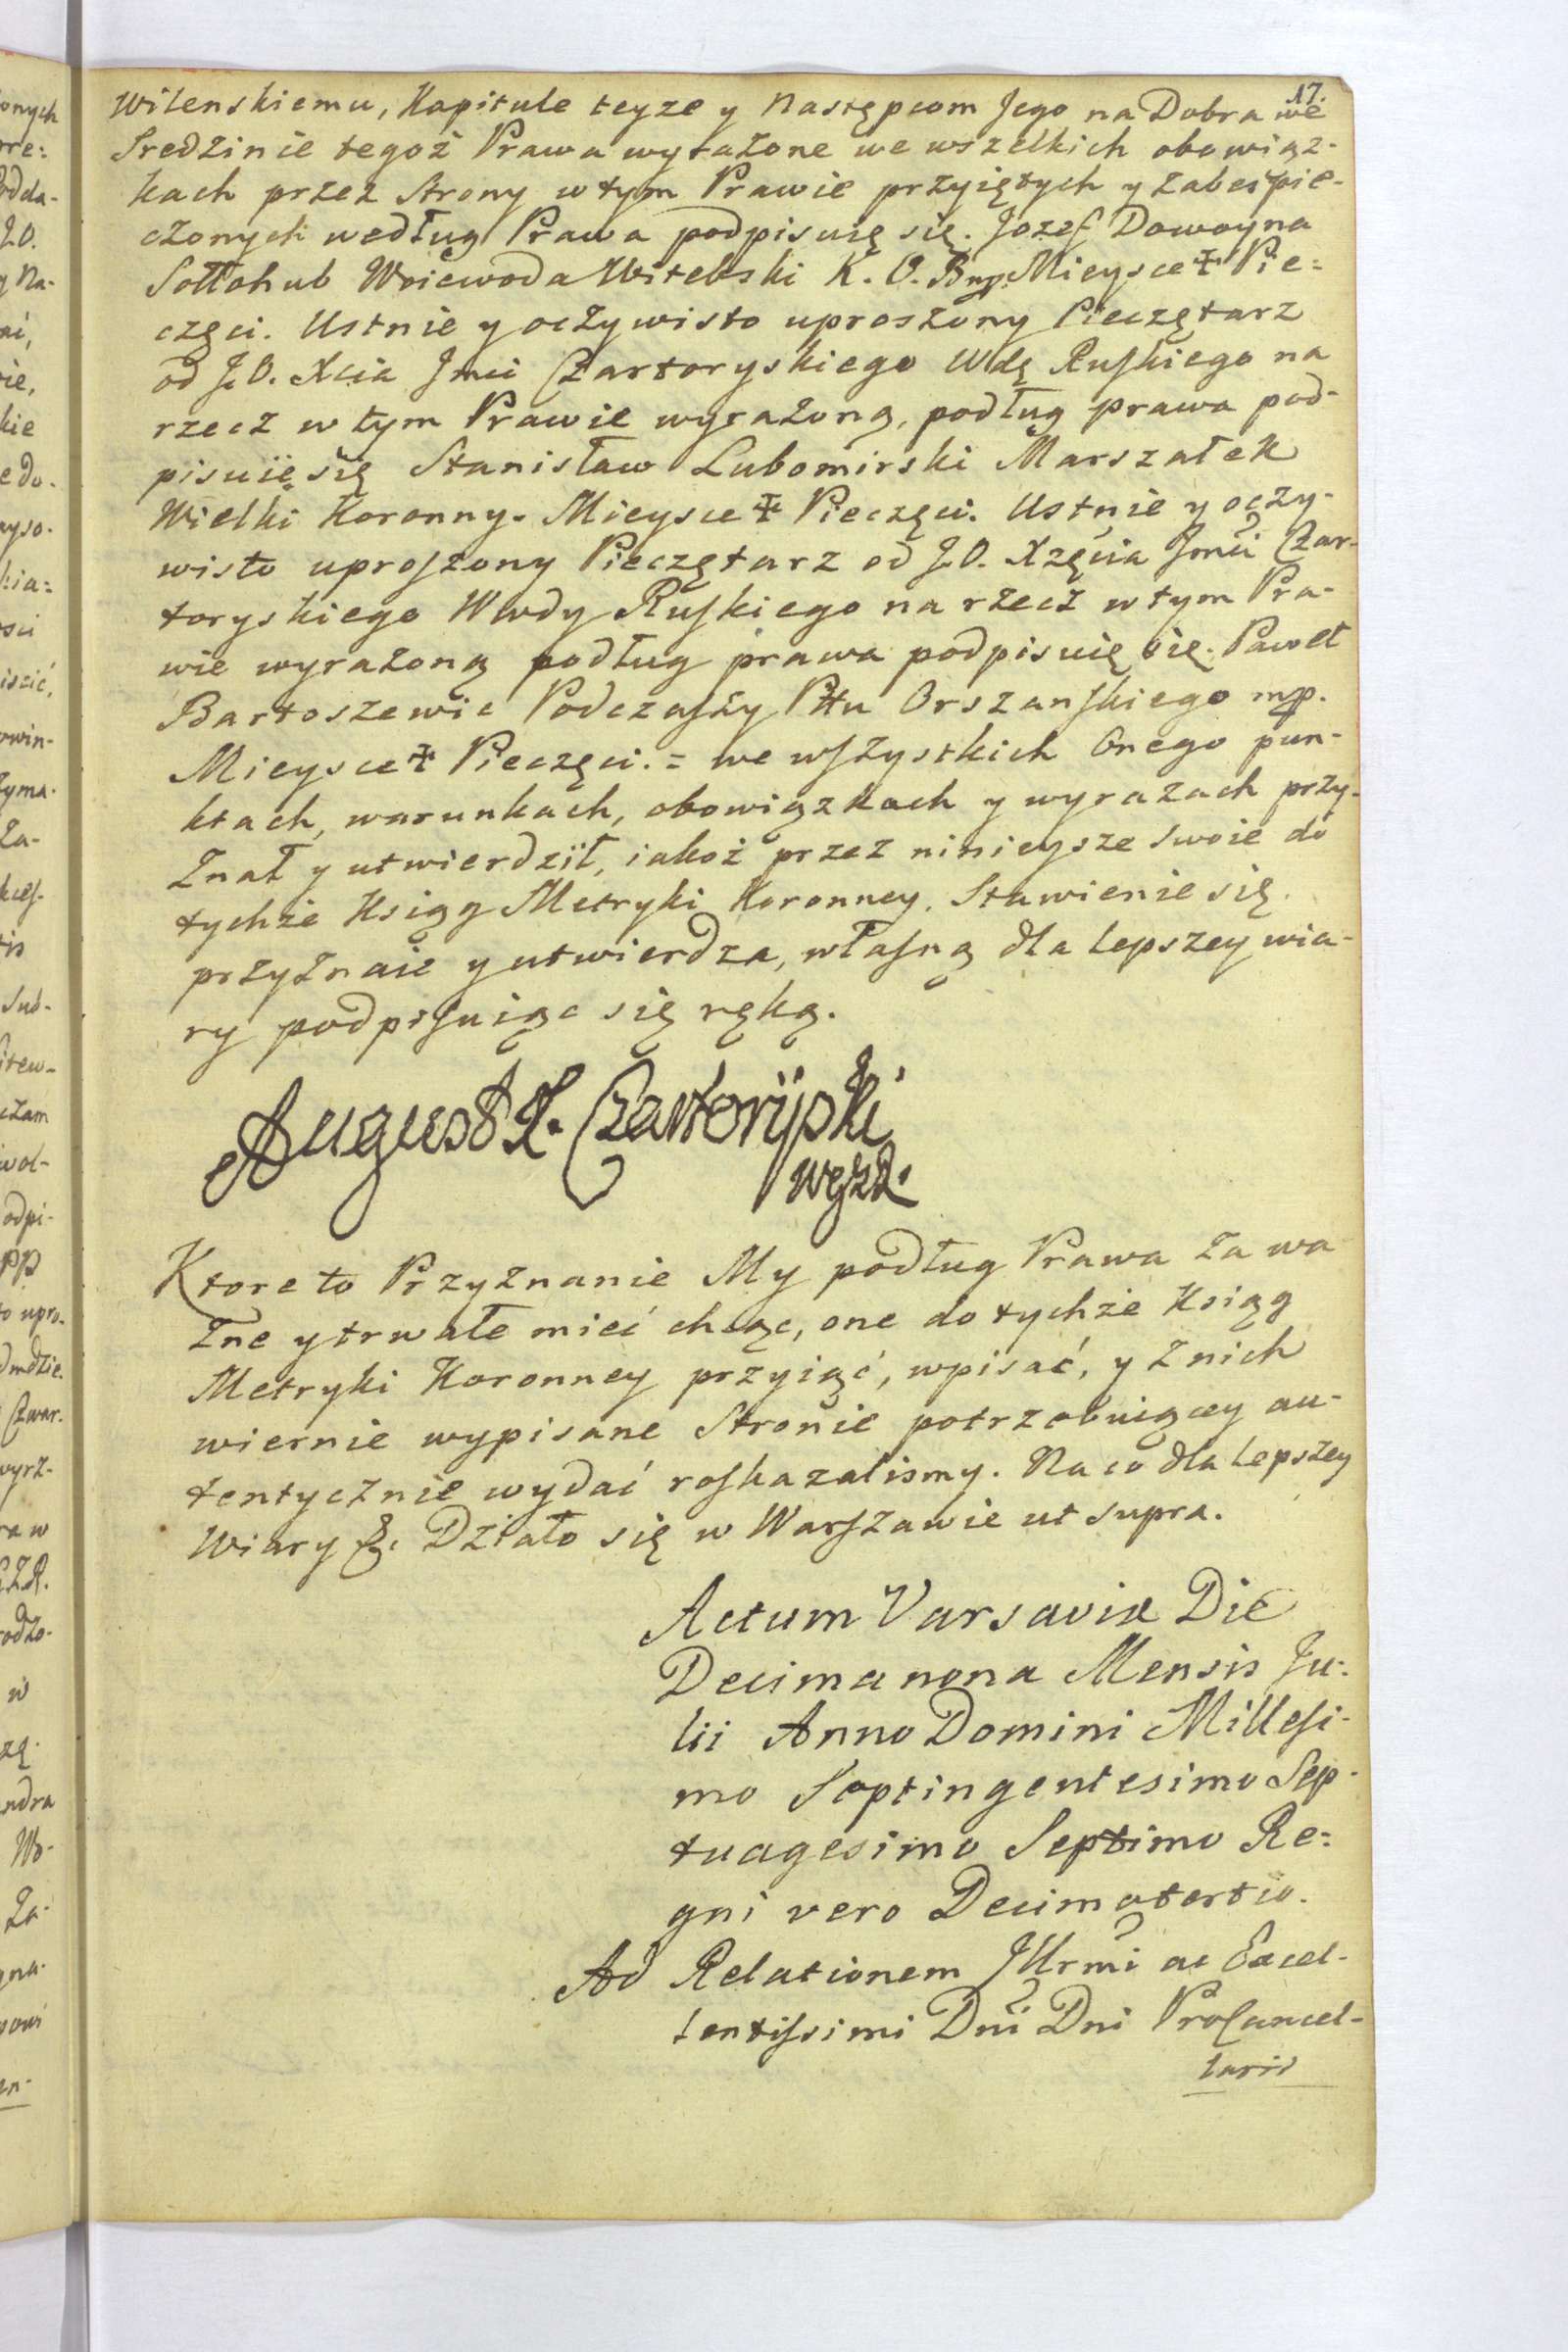 17.
Wilenskiemu, Kapitule teyze y Następcom Jego na Dobra we
Sredzinie tegoż Prawa wyrażone we wszelkich obowiąz-
kach przez Strony w tym Prawie przyiętych y zabeśpie-
czonych według Prawa podpisuię się. Jozef Dowoyna
Sołłohub Woiewoda Witebski K. O. B mp. Mieysce ☩ Pie=
częci. Ustnie y oczywisto uproszony Pieczętarz
od J.O. Xcia Jmci Czartoryskiego Wdę Ruskiego na
rzecz w tym Prawie wyrażoną, podług prawa pod-
pisuię się Stanisław Lubomirski Marszałek
Wielki Koronny. Mieysce ☩ Pieczęci. Ustnie y oczy-
wisto uproszony Pieczętarz od J.O. Xzęcia Jmci Czar-
toryskiego Wwdy Ruskiego na rzecz w tym Pra-
wie wyrażoną podług prawa podpisuię się. Paweł
Bartoszewic Podczaszy Pttu Orszanskiego mp.
Mieysce ☩ Pieczęci. = we wszystkich Onego pun-
ktach, warunkach, obowiązkach y wyrazach przy-
znał y utwierdził, iakoż przez ninieysze swoie do
tychże Ksiąg Metryki Koronney. Stawienie się
przyznaie y utwierdza, własną dla lepszey wia-
ry podpisuiąc się ręką.
August X. Czartoryski
Ktore to Przyznanie My podług Prawa za wa
żne y trwałe mieć chcąc, one do tychże Ksiąg
Metryki Koronney przyiąć, wpisać, y z nich
wiernie wypisane Stronie potrzebuiącey au-
tentycznie wydać roskazalismy. Na co dla lepszey
Wiary &. Działo się w Warszawie ut supra.
Actum Varsaviæ Die
Decima nona Mensis Ju-
lii Anno Domini Millesi-
mo Septingentesimo Sep-
tuagesimo Septimo Re=
gni vero Decimotertio.
Ad Relationem Jllrmi ac Excel-
lentissimi Dni Dni ProCancel-
larii